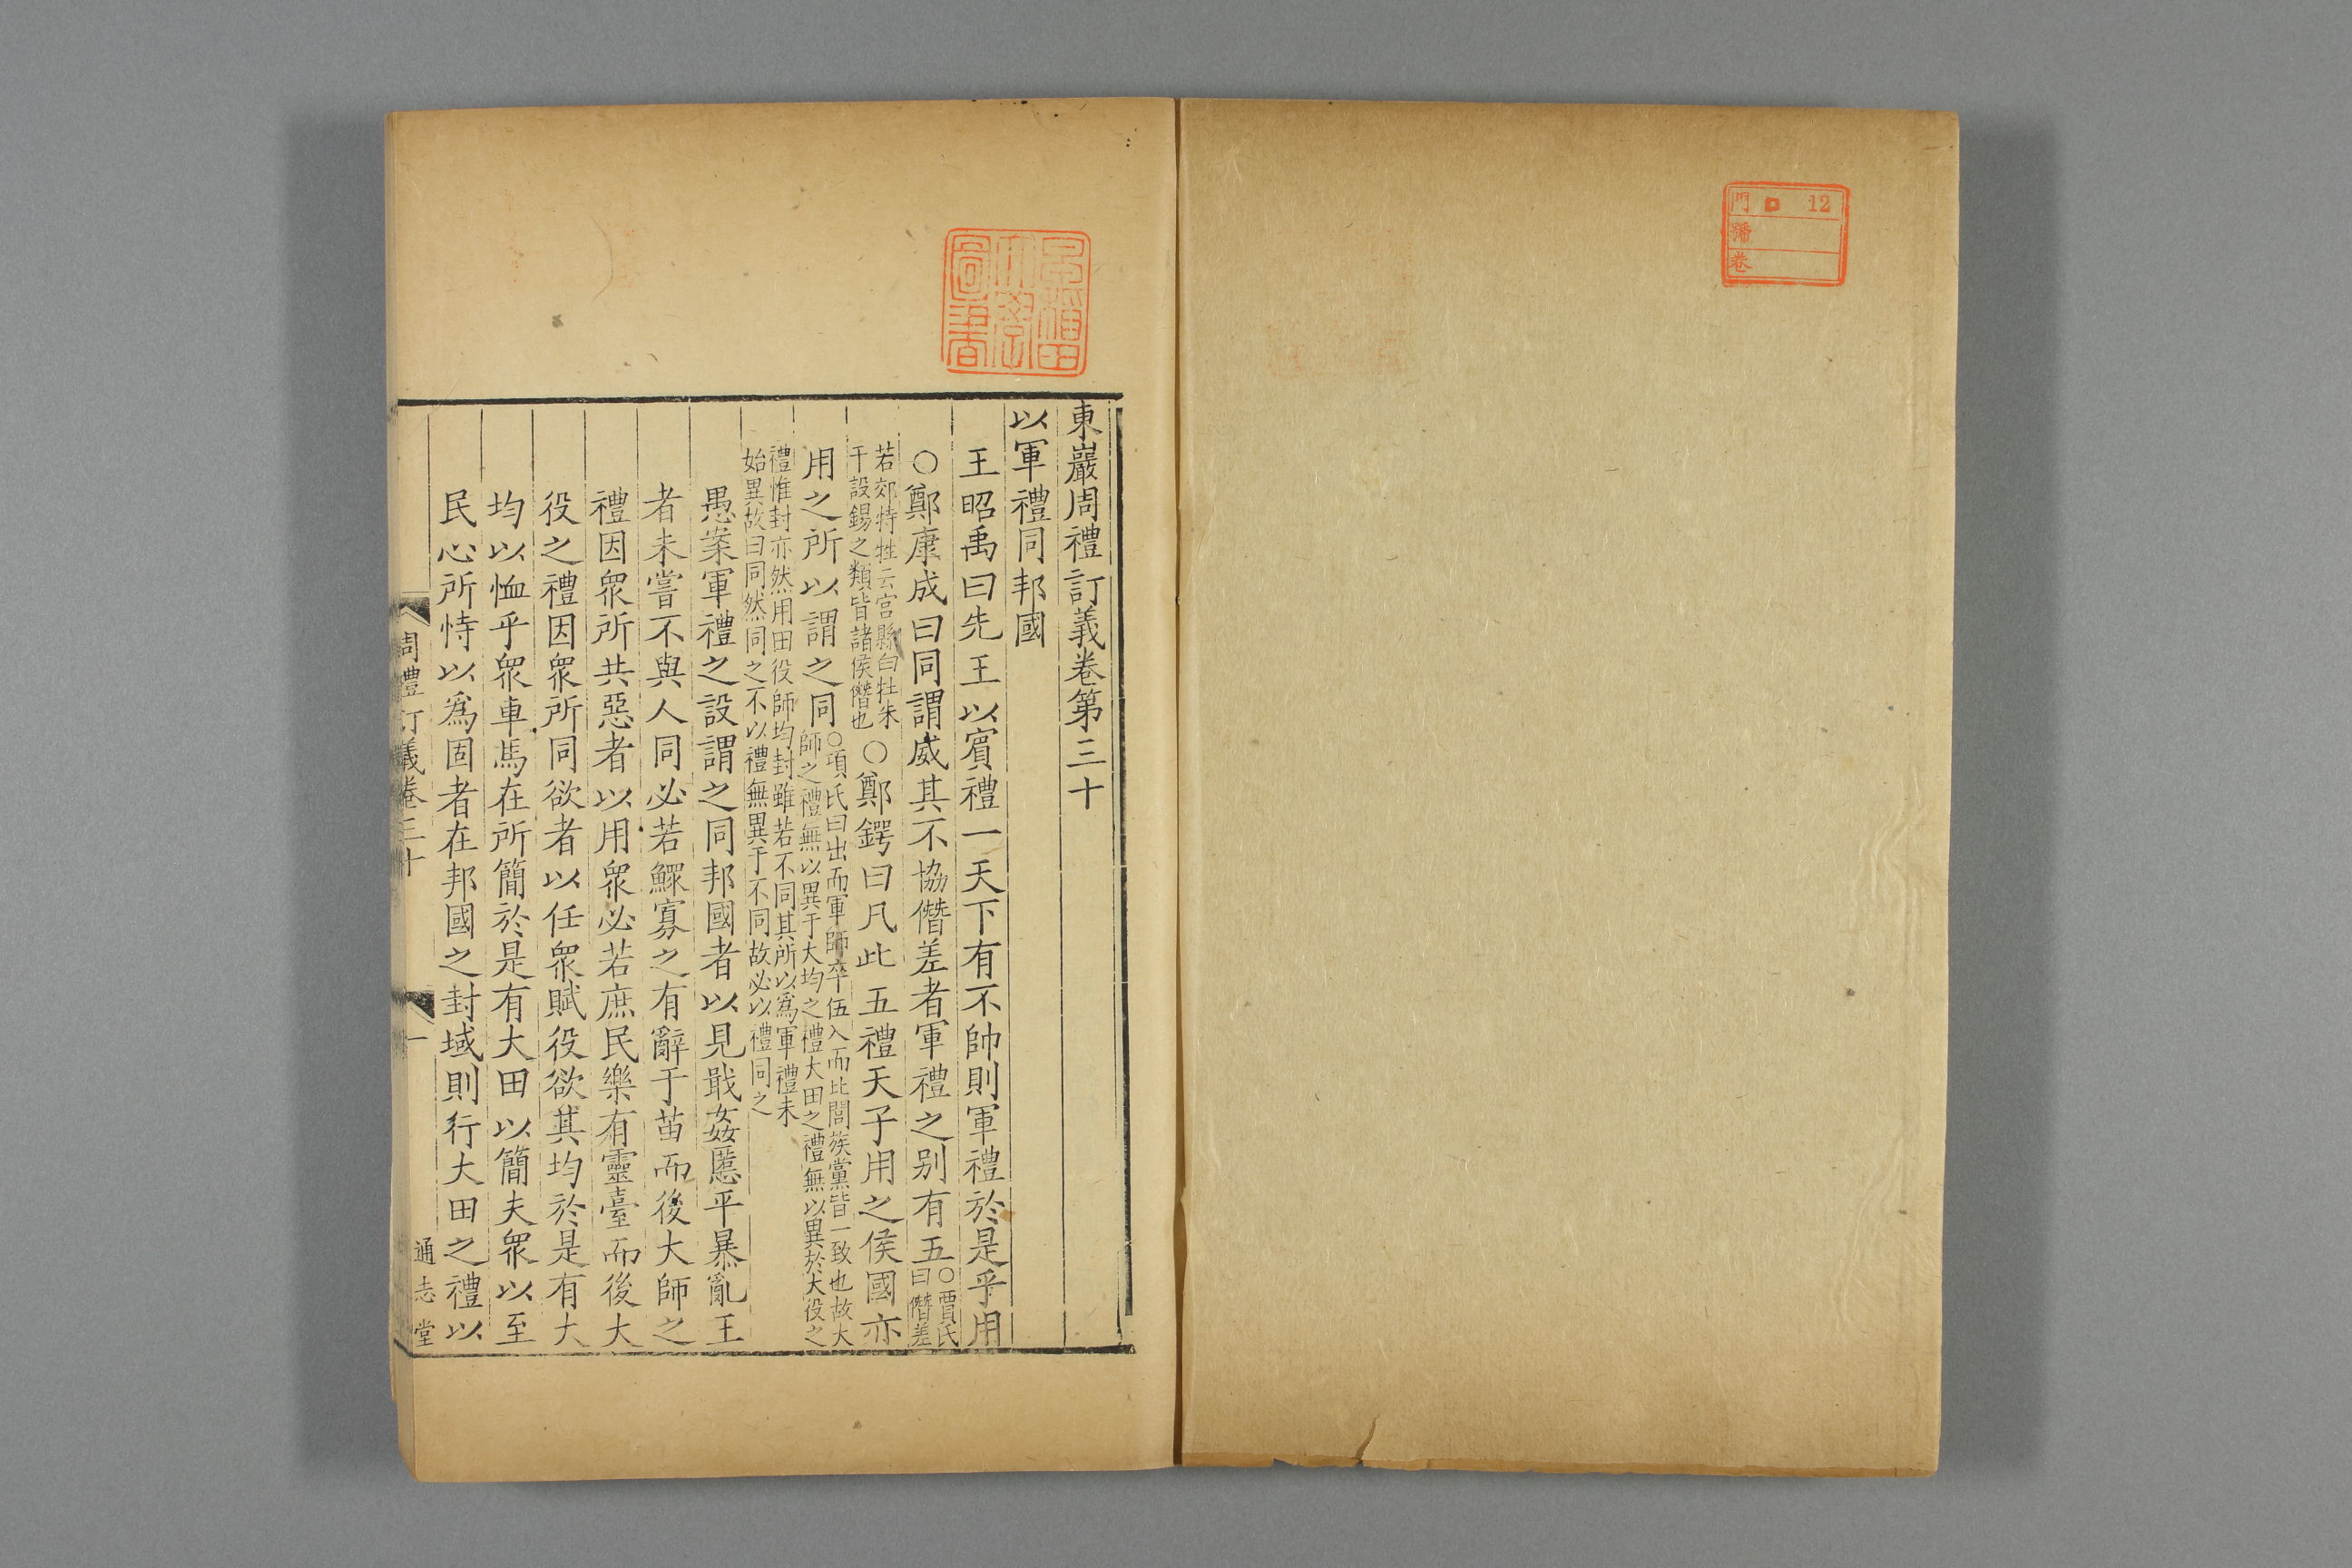 門 12
號
卷
早稲田大學圖書
東巖周禮訂義卷第三十
以軍禮同邦國
王昭禹曰先王以賓禮一天下有不帥則軍禮於是乎用
○鄭康成曰同謂威其不協僭差者軍禮之别有五○賈氏
曰僭差
若郊特牲云宮縣白牡朱
干設錫之類皆諸侯僭也○鄭鍔曰凡此五禮天子用之侯國亦
用之所以謂之同○項氏曰出而軍師卒伍入而比閭族黨皆一致也故大
師之禮無以異于大均之禮大田之禮無以異於大役之
禮惟封亦然用田役師均封雖若不同其所以爲軍禮未
始異故曰同然同之不以禮無異于不同故必以禮同之
愚案軍禮之設謂之同邦國者以見戢姦慝平暴亂王
者未嘗不與人同必若鰥寡之有辭于苗而後大師之
禮因衆所共惡者以用衆必若庶民樂有靈臺而後大
役之禮因衆所同欲者以任衆賦役欲其均於是有大
均以恤乎衆車馬在所簡於是有大田以簡夫衆以至
民心所恃以爲固者在邦國之封域則行大田之禮以
周禮訂義卷三十
一
通志堂